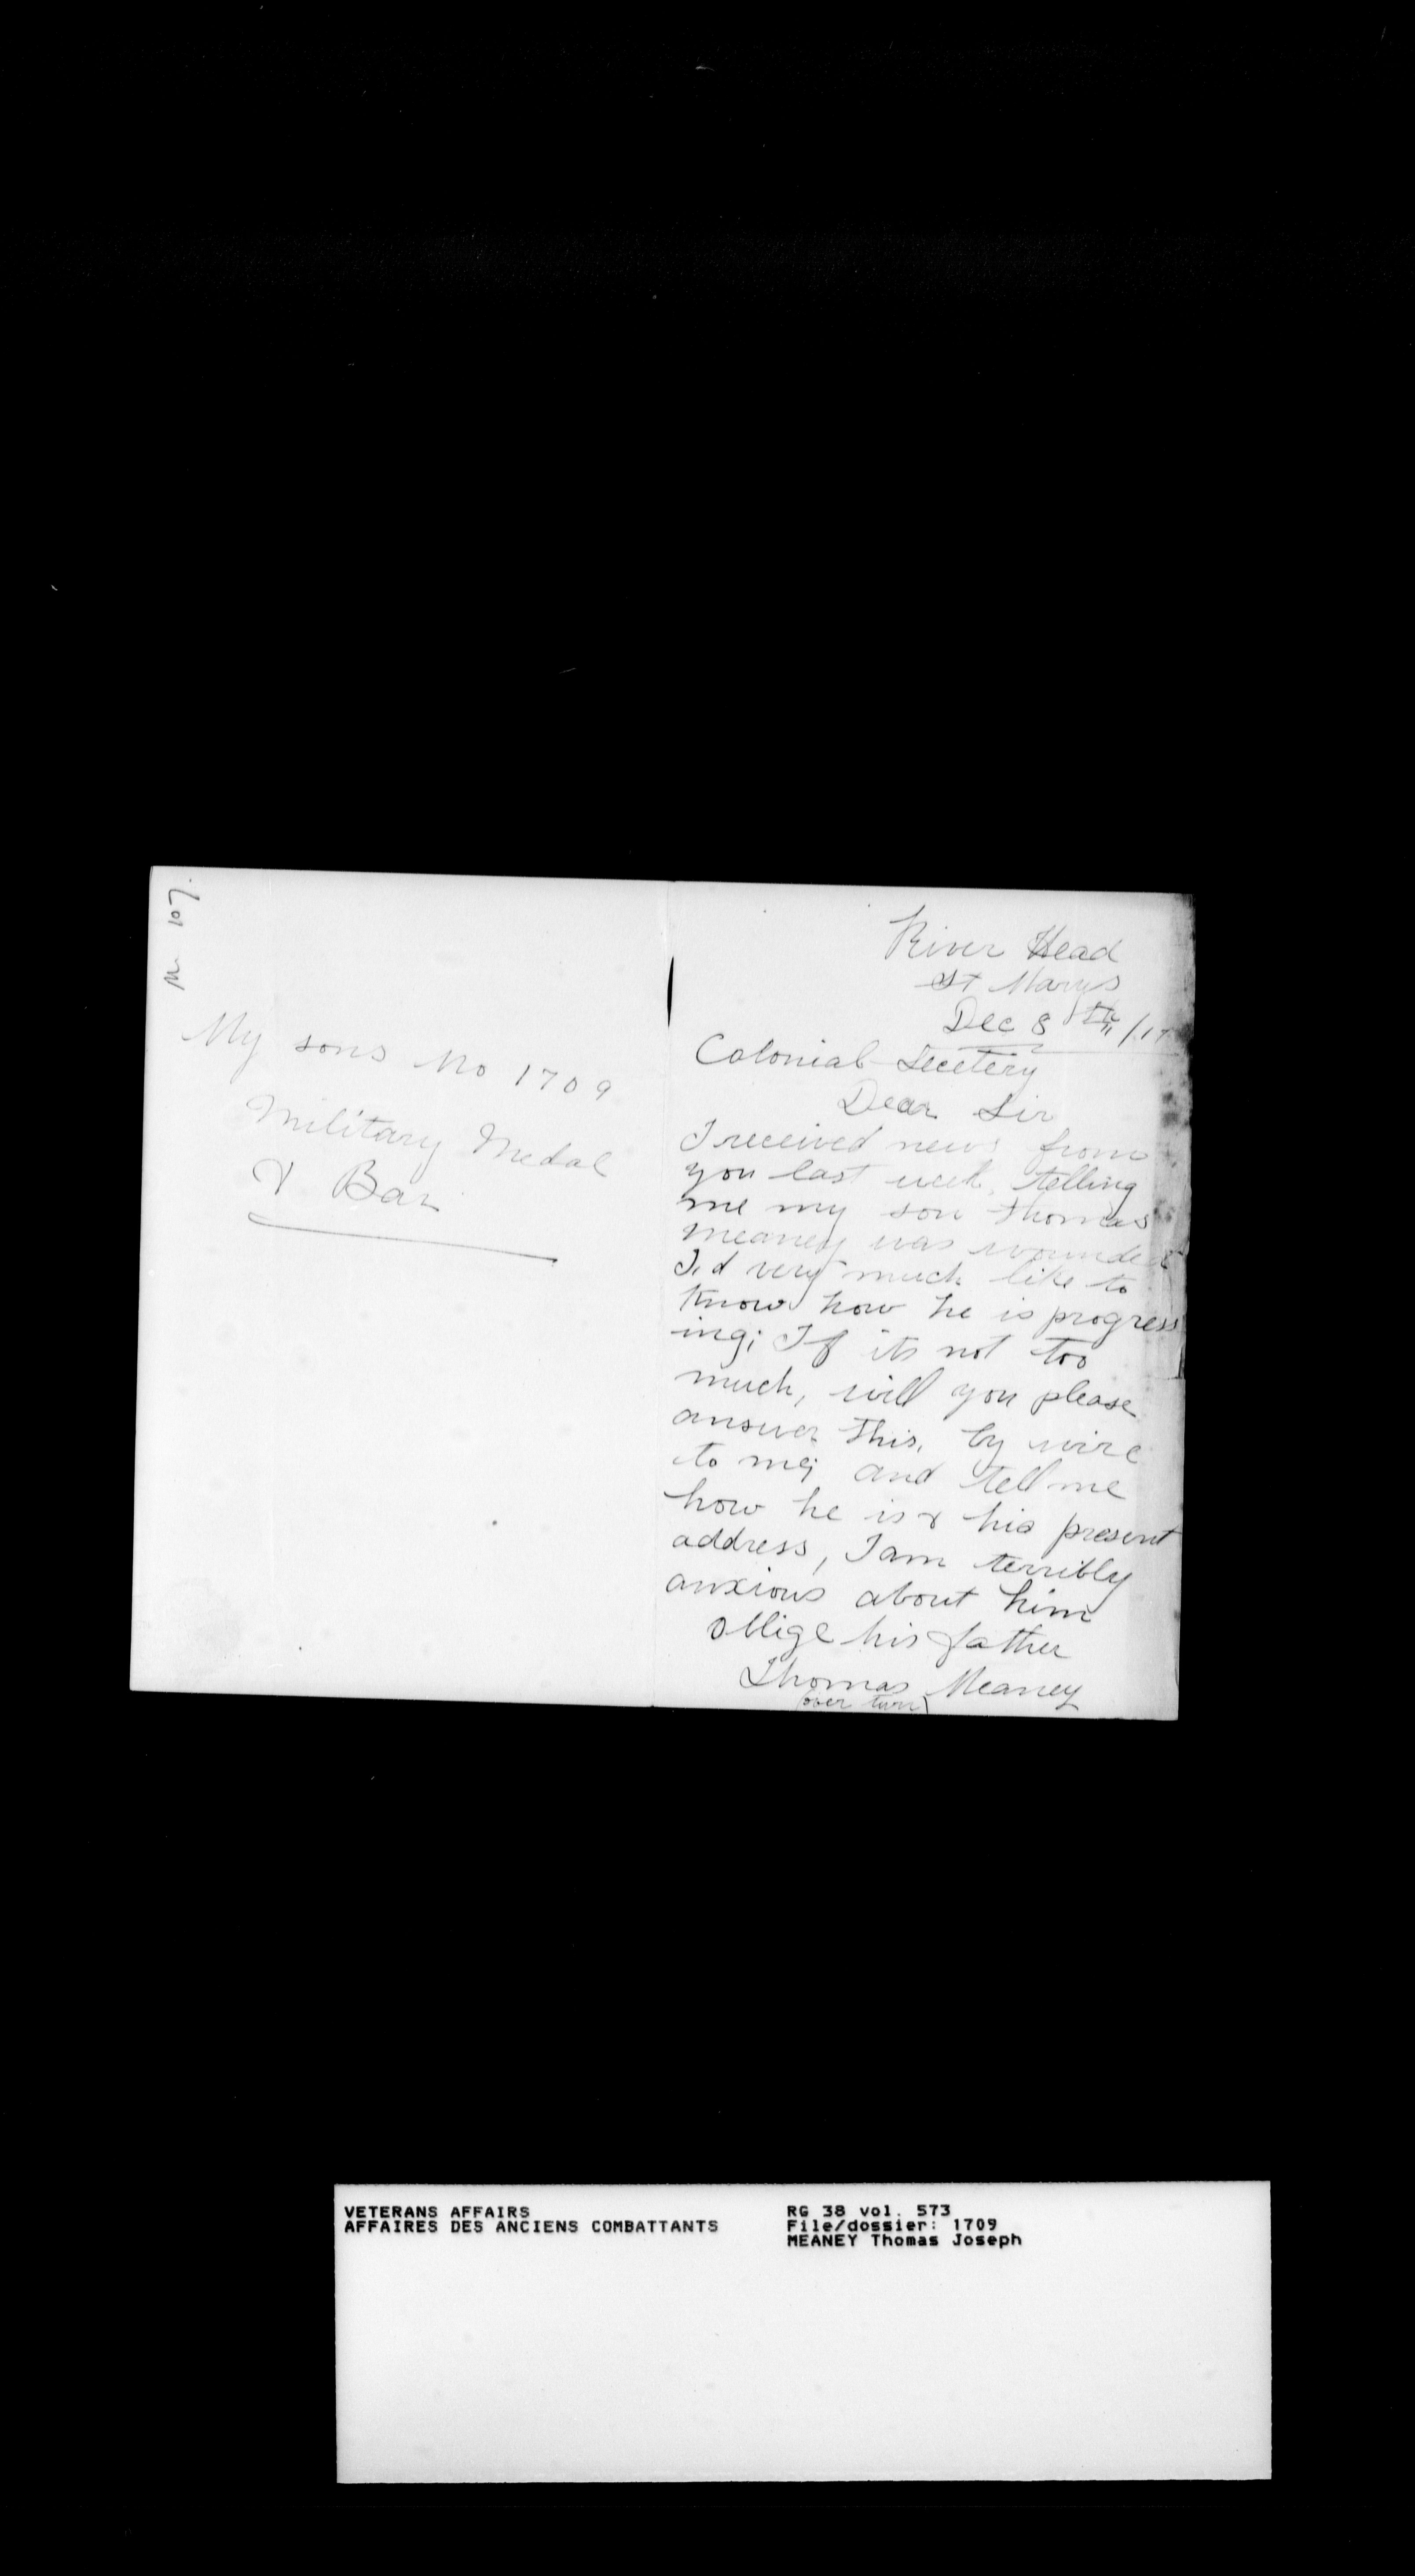 M 107.
My sons No 1709
Military Medal
& Bar
River Head
St Marys
Dec 8th/17
Colonial Secetery
Dear Sir
I received news from
you last week, telling
me my son Thomas
Meaney was wounded
I,d very much like to
know how he is progress
ing; If its not too
much, will you please
answer this, by wire
to me; and tell me
how he is & his present
address, I am terribly
anxious about him
oblige his father
Thomas Meaney
(over turn)
VETERANS AFFAIRS
AFFAIRES DES ANCIENS COMBATTANTS
RG 38 vol. 573
File/dossier: 1709
MEANEY Thomas Joseph